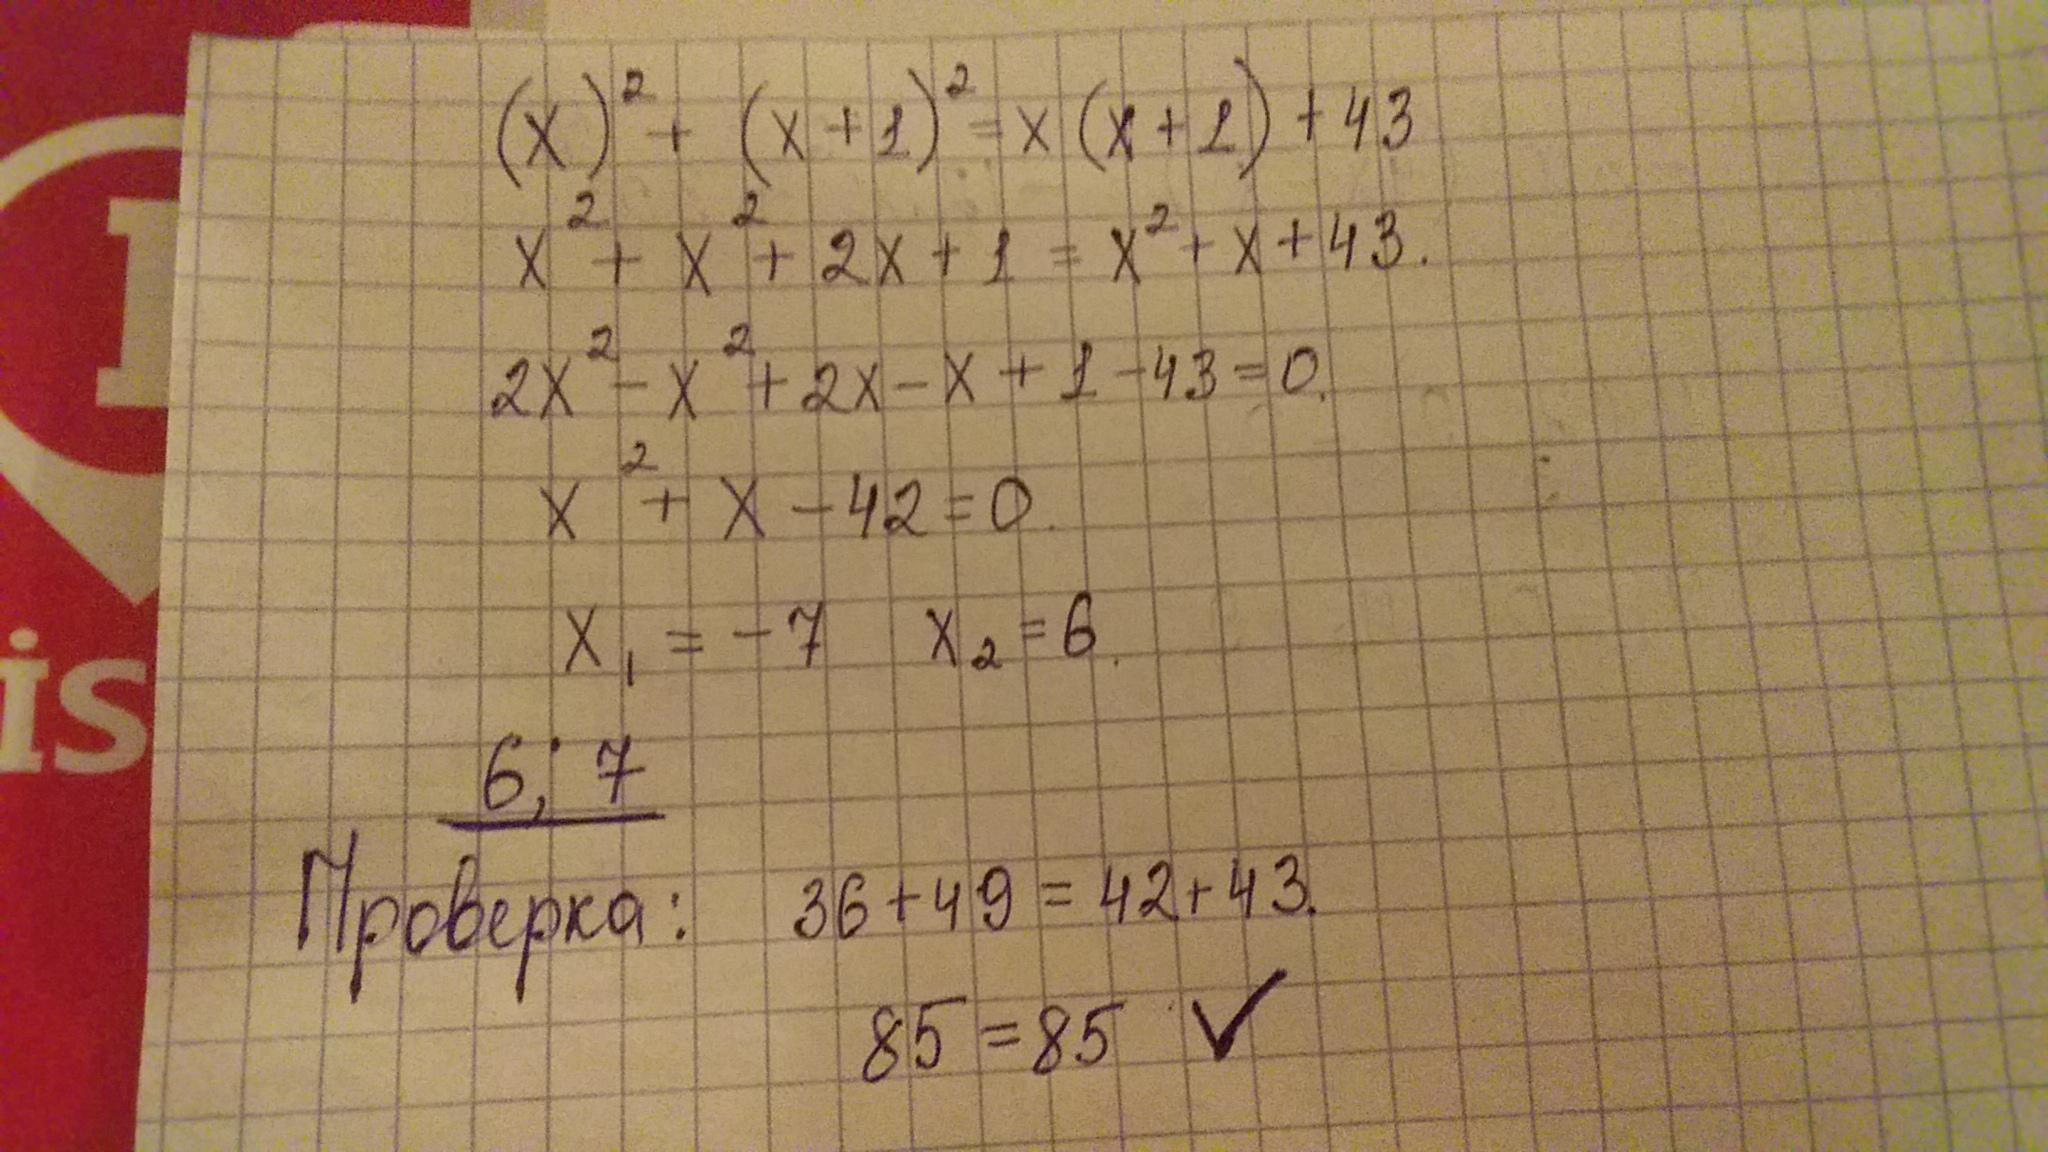 (x)² + (x+1)² = x(x+1) + 43
x² + x² + 2x + 1 = x² + x + 43.
2x² - x² + 2x - x + 1 - 43 = 0.
x² + x - 42 = 0.
x₁ = -7 x₂ = 6.
6; 7
Проверка: 36 + 49 = 42 + 43.
85 = 85 ✓
is